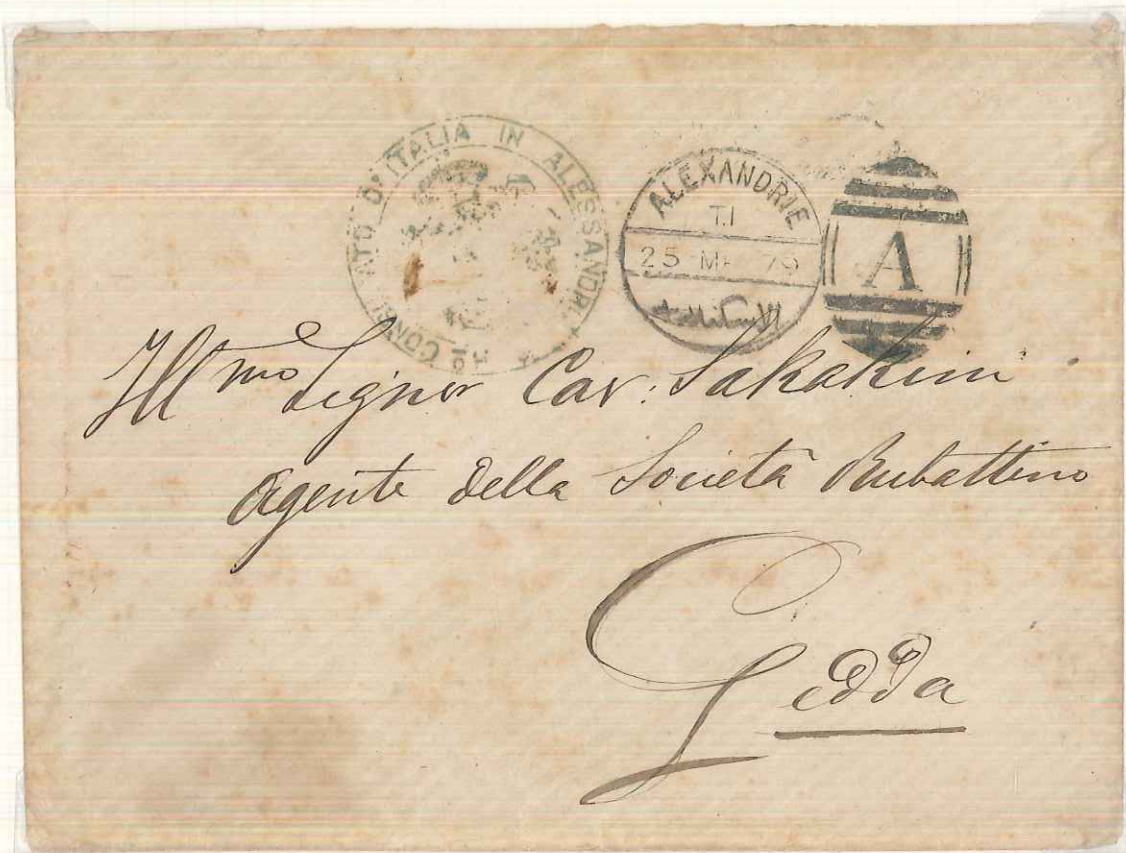 CONSOLATO D'ITALIA IN ALESSANDRIA
ALEXANDRIE
T.I
25 MA 79
الاسكندرية
A
Illmo Signor Cav: Sakakini
Agente della Società Rubattino
Gedda